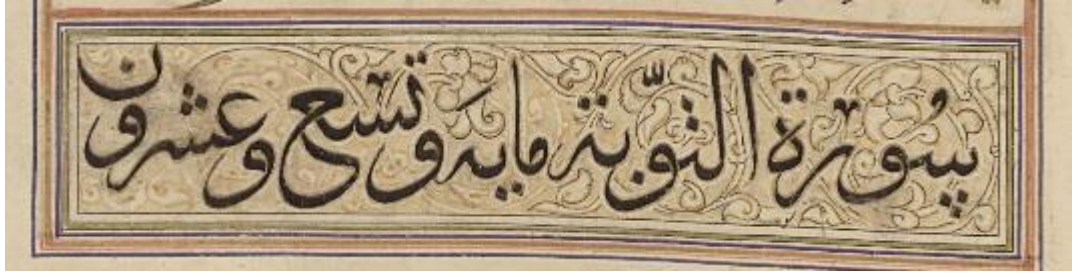 سُورة التوبة مايه وتسع وعشرون